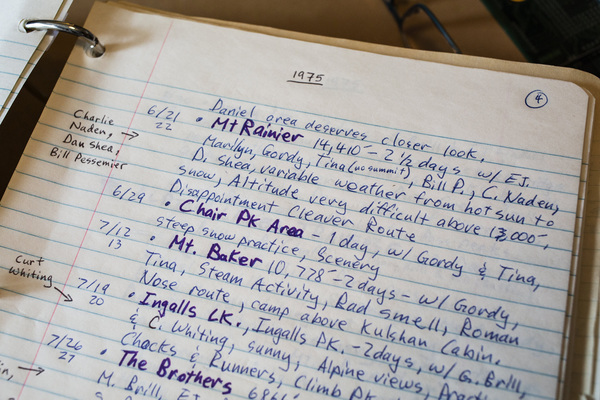 1975
4
Daniel area deserves closer look.
6/21 22 • Mt Rainier 14,410' - 2 1/2 days w/ E.J.
Charlie Naden, → Dan Shea, Bill Pessemier
Marilyn, Gordy, Tina (no summit), Bill P., C. Naden,
D. Shea, variable weather from hot sun to
snow, Altitude very difficult above 13,000',
Disappointment Cleaver Route
6/29 • Chair PK Area - 1 day, w/ Gordy & Tina,
steep snow practice, Scenery
7/12 13 • Mt. Baker 10,778' - 2 days - w/ Gordy,
Tina, Steam Activity, Bad smell, Roman
Nose route, camp above Kulshan Cabin.
Curt Whiting →
7/19 20 • Ingalls LK., Ingalls PK. - 2 days, w/ G. Brill,
& C. Whiting, sunny, Alpine views,
Chocks & Runners, Climb PK.
7/26 27 • The Brothers
M. Brill, E.J.